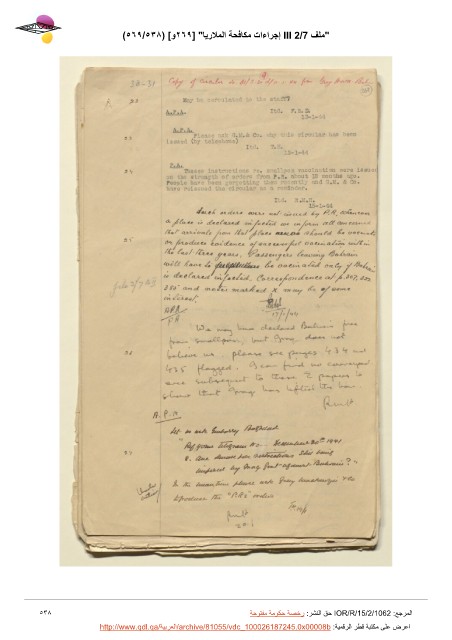 "ملف 2/7 III إجراءات مكافحة الملاريا" [٢٦٩و] (٥٦٩/٥٣٨)
May be circulated to the staff?
13-1-44
Please ask G.M.& Co. why this circular has been
issued (by telephone)
13-1-44
These instructions re. smallpox vaccination were issued
on the strength of orders from P.R. about 18 months ago.
People have been forgetting them recently and G.M. & Co.
have reissued the circular as a reminder.
13-1-44
Such orders were not issued by P.R. Whenever
a place is declared infected we inform all concerned
that arrivals from that place should be vaccinated
or produce evidence of successful vaccination within
the last three years. Passengers leaving Bahrain
will have to be vaccinated only if Bahrain
is declared infected. Correspondence at p.
and notes marked X may be of some
interest.
We may have declared Bahrain free
from smallpox, but Iraq does not
believe us. Please see pages 434 and
435 flagged. I can find no correspondence
subsequent to these 2 papers to
show that Iraq has lifted the ban.
A.P.A
Let us ask Embassy Baghdad
December 30th 1941
imposed by Iraq Govt against Bahrain?"
In the meantime please ask Gray Mackenzie & Co
to produce the "P.R's" order
المرجع: IOR/R/15/2/1062 حق النشر: رخصة حكومة مفتوحة
اعرض على مكتبة قطر الرقمية: http://www.qdl.qa/العربية/archive/81055/vdc_100026187245.0x00008b
٥٣٨